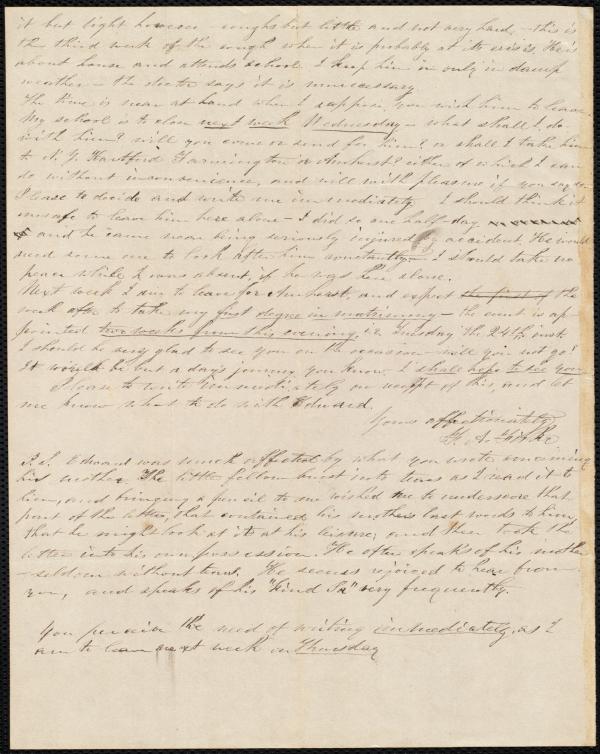 it but light however - coughs but little and not very hard, - this is
the third week of the cough when it is probably at its crisis. He is
about house and attends school. I keep him in only in damp
weather - the doctor says it is unnecessary.
The time is near at hand when I suppose you wish him to leave.
My school is to close next week Wednesday - what shall I do
with him? will you come or send for him? or shall I take him
to N.Y. Hartford Farmington or Amherst? either of which I can
do without inconvenience, and will with pleasure if you say so.
Please to decide and write me immediately. I should think it
unsafe to leave him here alone - I did so one half-day
and he came near being seriously injured by accident. He would
need some one to look after him constantly - I should take no
peace while I was absent, if he was here alone.
Next week I am to leave for Amherst, and expect the first of the
week after to take my first degree in matrimony - the event is ap-
pointed two weeks from this evening, i.e. Tuesday the 24th inst.
I should be very glad to see you on the occasion - will you not go?
It would be but a day's journey you know. I shall hope to see you.
Please to write immediately on receipt of this, and let
me know what to do with Edward.
Yours affectionately
P.S. Edward was much affected by what you wrote concerning
his mother. The little fellow burst into tears as I read it to
him, and bringing a pencil to me wished me to underscore that
part of the letter, that contained his mother's last words to him,
that he might look at it at his leisure, and then took the
letter into his own possession. He often speaks of his mother
- seldom without tears. He seems rejoiced to hear from
you, and speaks of his "kind Pa" very frequently.
You perceive the need of writing immediately, as I
am to leave next week on Thursday